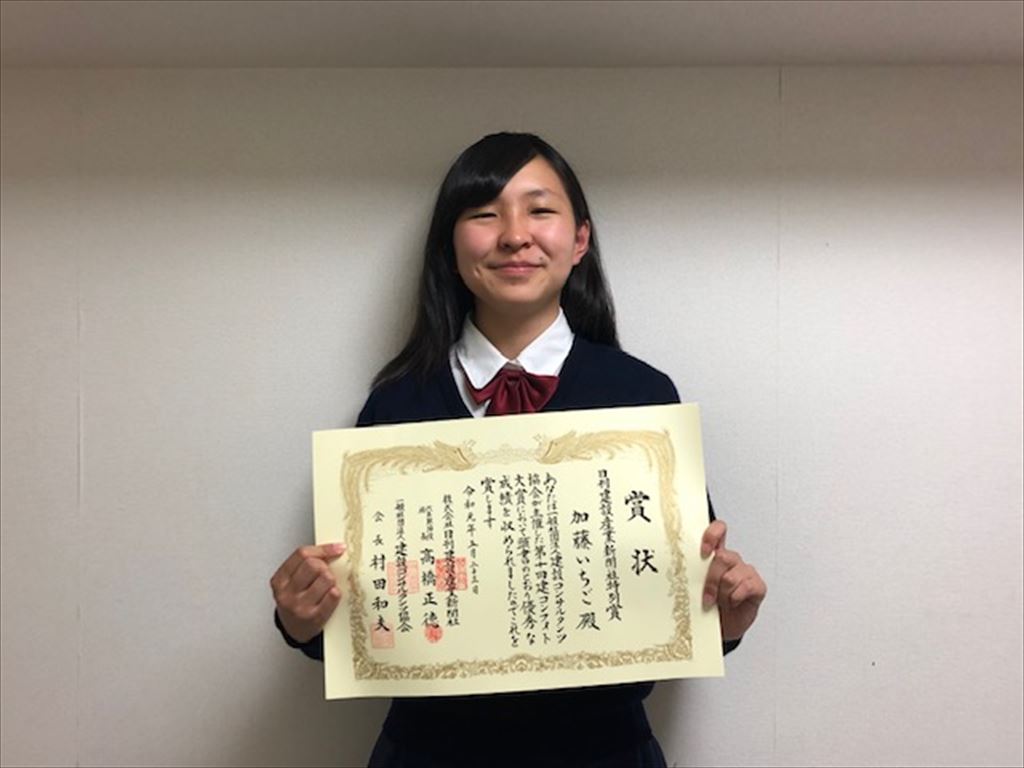 賞状
日刊建設産業新聞社特別賞
加藤いちご 殿
あなたは一般社団法人建設コンサルタンツ
協会が主催した第十回建コンフォト
大賞において頭書のとおり優秀な
成績を収められましたのでこれを
賞します
令和元年五月二十三日
株式会社日刊建設産業新聞社
高橋正徳
一般社団法人建設コンサルタンツ協会
会長 村田和夫